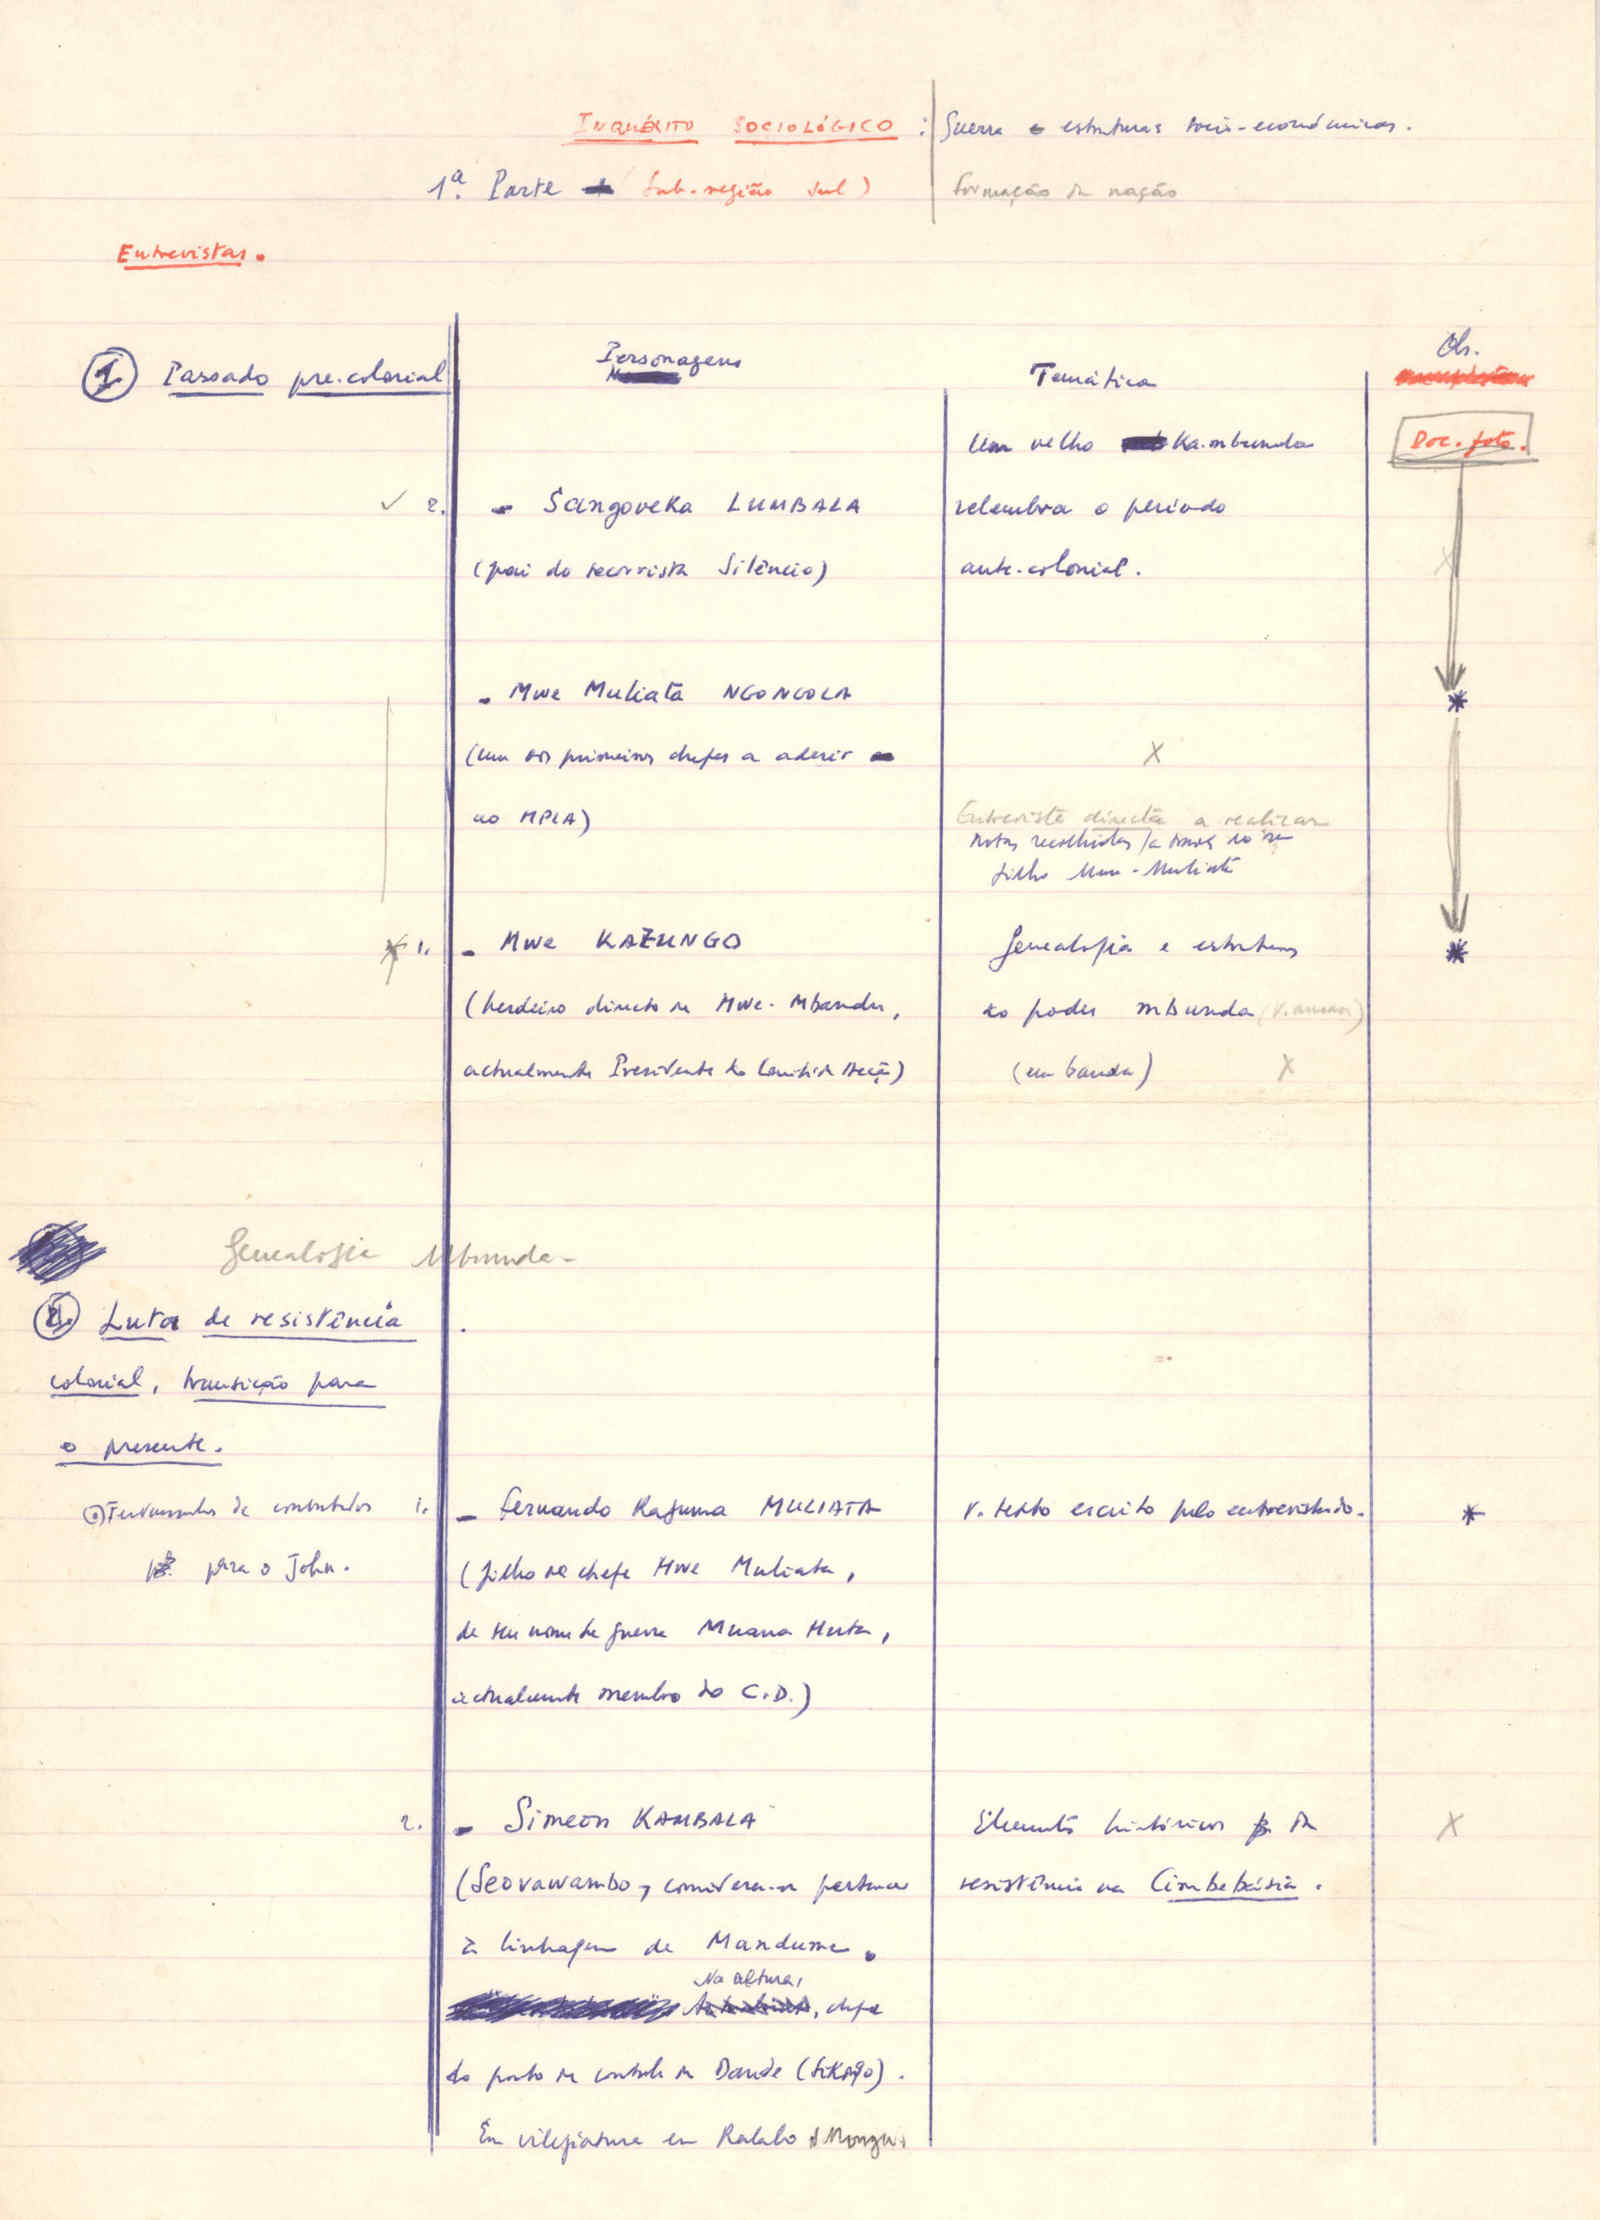 INQUÉRITO SOCIOLÓGICO : Guerra e estruturas sócio-económicas.
1ª. Parte (Sub-região Sul) formação da nação
Entrevistas.
Personagens
Obs.
1. Passado pre-colonial
Temática
Doc. foto.
Um velho Ka-mbunda
2. - Sangoveka LUMBALA relembra o período
(pai do socorrista Silêncio) ante-colonial.
- Mwe Muliata NGONGOLA
(um dos primeiros chefes a aderir X
ao MPLA) Entrevista directa a realizar
notas recolhidas
filho Mwe-Muliata
1. - Mwe KAZUNGO Genealogia e estrutura
(herdeiro directo de Mwe-Mbandu, do poder mbunda (V. anexo)
actualmente Presidente do Comité de Acção) (em banda) X
Genealogia Mbunda-
2. Luta de resistência
colonial, transição para
o presente.
de contratados 1. - Fernando Kafuma MULIATA V. texto escrito pelo entrevistado.
para o John. (filho de chefe Mwe Muliata,
de seu nome de guerra Muana Huta,
actualmente membro do C.D.)
2. - Simeon KAMBALA Elementos históricos da X
(Seovawambo, considera-se pertencer resistência na Cimbebásia.
à linhagem de Mandume.
Na altura,
chefe
do posto de controle de Dande (Sikongo).
Em vilegiatura em Kalabo